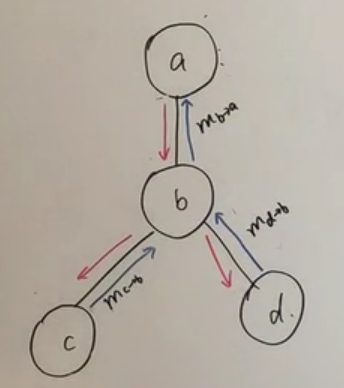 a
m b→a
b
m d→b
m c→b
c
d.